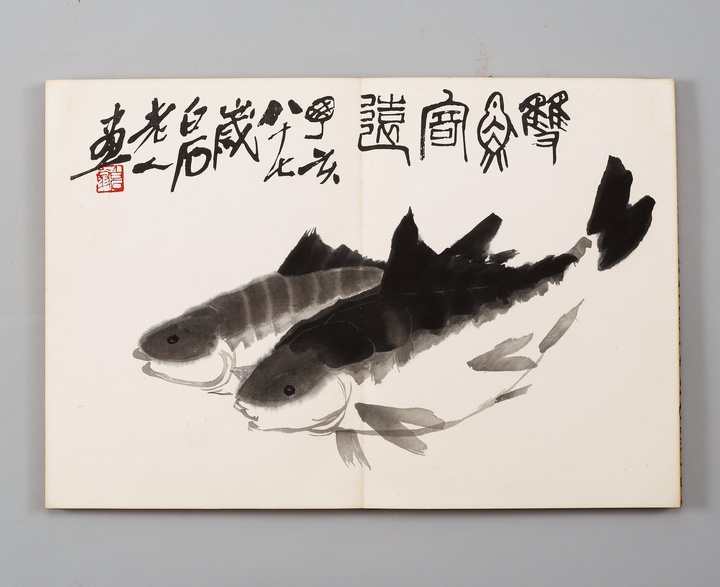 雙魚寄遠
丁亥
八十七
歲
白石
老人
畫